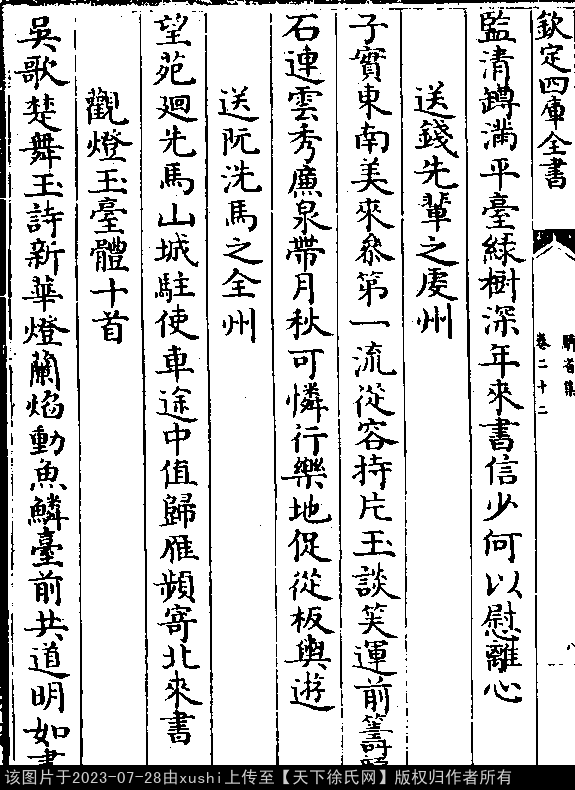 欽定四庫全書
卷二十二
監清罇滿平臺綠樹深年來書信少何以慰離心
送錢先輩之虔州
子實東南美來叅第一流從容持片玉談笑運前籌
石連雲秀廉泉帶月秋可憐行樂地促從板輿遊
送阮洗馬之全州
望苑廻先馬山城駐使車途中值歸雁頻寄北來書
觀燈玉臺體十首
吳歌楚舞玉詩新華燈蘭焰動魚鱗臺前共道明如晝
该图片于2023-07-28由xushi上传至【天下徐氏网】版权归作者所有